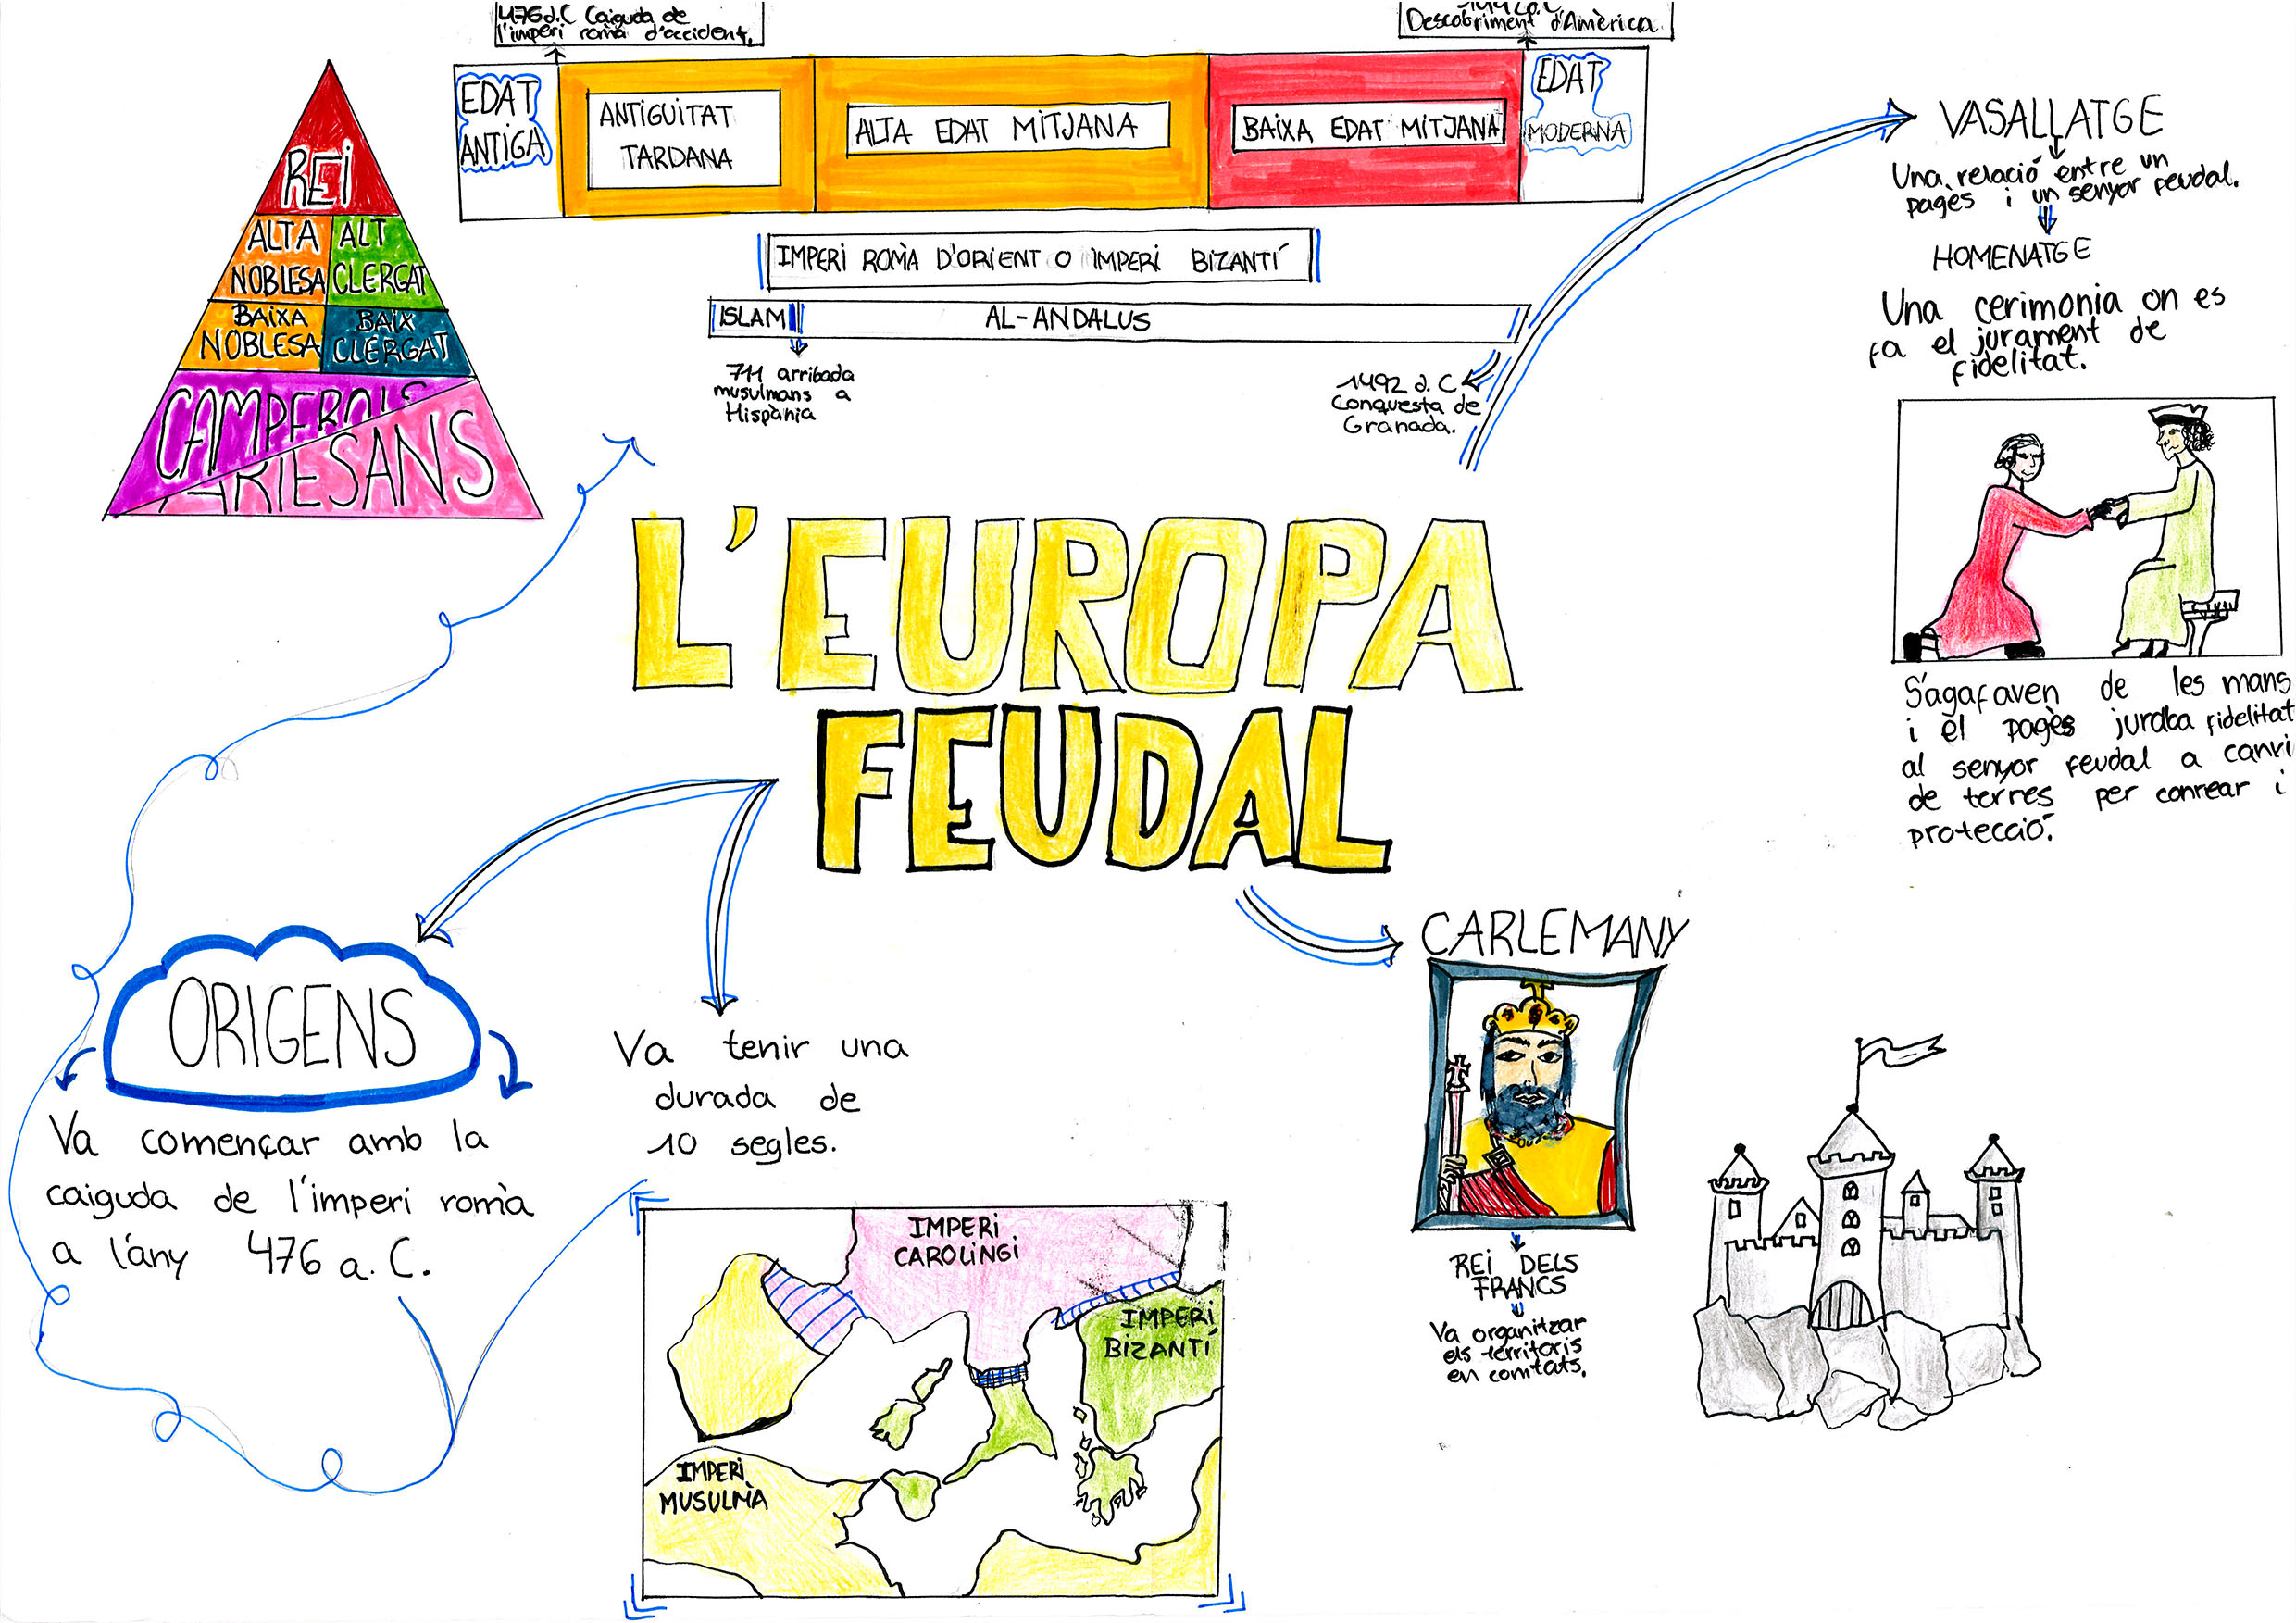 476 d.C Caiguda de
l'imperi romà d'occident.
Descobriment d'Amèrica.
EDAT
ANTIGA
ANTIGUITAT
TARDANA
ALTA EDAT MITJANA
BAIXA EDAT MITJANA
EDAT
MODERNA
IMPERI ROMÀ D'ORIENT O IMPERI BIZANTÍ
ISLAM
AL-ANDALUS
711 arribada
musulmans a
Hispània
1492 d.C
Conquesta de
Granada.
REI
ALTA
NOBLESA
ALT
CLERGAT
BAIXA
NOBLESA
BAIX
CLERGAT
CAMPEROLS
ARTESANS
VASALLATGE
Una relació entre un
pagès i un senyor feudal.
HOMENATGE
Una cerimonia on es
fa el jurament de
fidelitat.
S'agafaven de les mans
i el pagès juraba fidelitat
al senyor feudal a canvi
de terres per conrear i
protecció.
L'EUROPA
FEUDAL
ORIGENS
Va començar amb la
caiguda de l'imperi romà
a l'àny 476 a.C.
Va tenir una
durada de
10 segles.
IMPERI
CAROLINGI
IMPERI
BIZANTÍ
IMPERI
MUSULMÀ
CARLEMANY
REI DELS
FRANCS
Va organitzar
els territoris
en comtats.